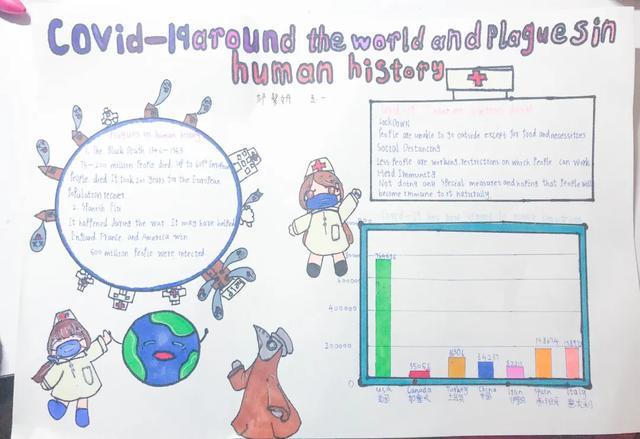 Covid-19 around the world and Plagues in
human history
Plagues in human history
1. The Black Death 1346-1353
75-200 million People died up to 60% European
People died it took 200 years for the European
Population recover
2. Spanish Flu
It happened during the war. It may have helped
England France and America win
500 million People were infected
LockDown
People are unable to go outside except for food and necessities
Social Distancing
Less People are working, restrictions on which People can work
Herd Immunity
Not doing any special measures and hoping that People will
become immune to it naturally
400000
200000
0
USA
Canada
Turkey
China
Iran
Spain
Italy
美国
加拿大
土耳其
中国
伊朗
西班牙
意大利